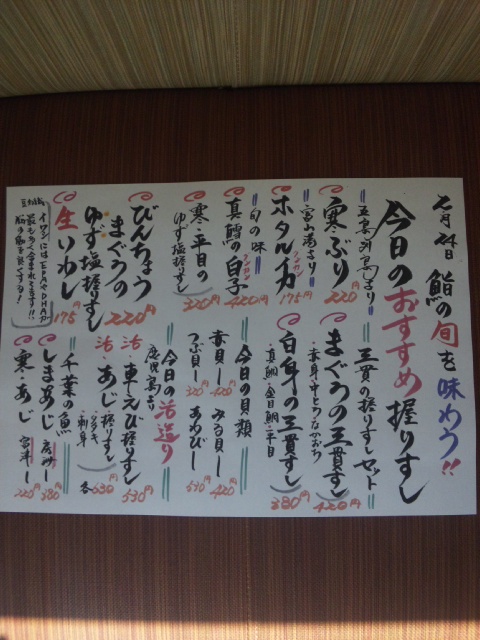 月24日 鮨の旬を味わう!!
今日のおすすめ握りすし
五島列島より
寒ぶり 220円
富山湾より
ホタルイカ 175円
旬の味
真鱈の白子 420円
寒・平目の
ゆず塩握りすし 320円
びんちょう
まぐろの
ゆず塩握りすし 220円
生いわし 175円
豆知識
イワシにはEPAやDHAが
最も多く含まれてます!!
脳の働きを良くする!
三貫の握りすしセット
まぐろの三貫すし 420円
・赤身・中とろ・なかおち
白身の三貫すし 380円
・真鯛・金目鯛・平目
今日の貝類
赤貝 420円
みる貝 420円
つぶ貝 320円
あわび 530円
今日の活造り
鹿児島より
活・車えび握りすし 530円
活 あじ握りすし
・タタキ
・刺身 各630円
千葉の魚
しまあじ 380円
寒・あじ 220円